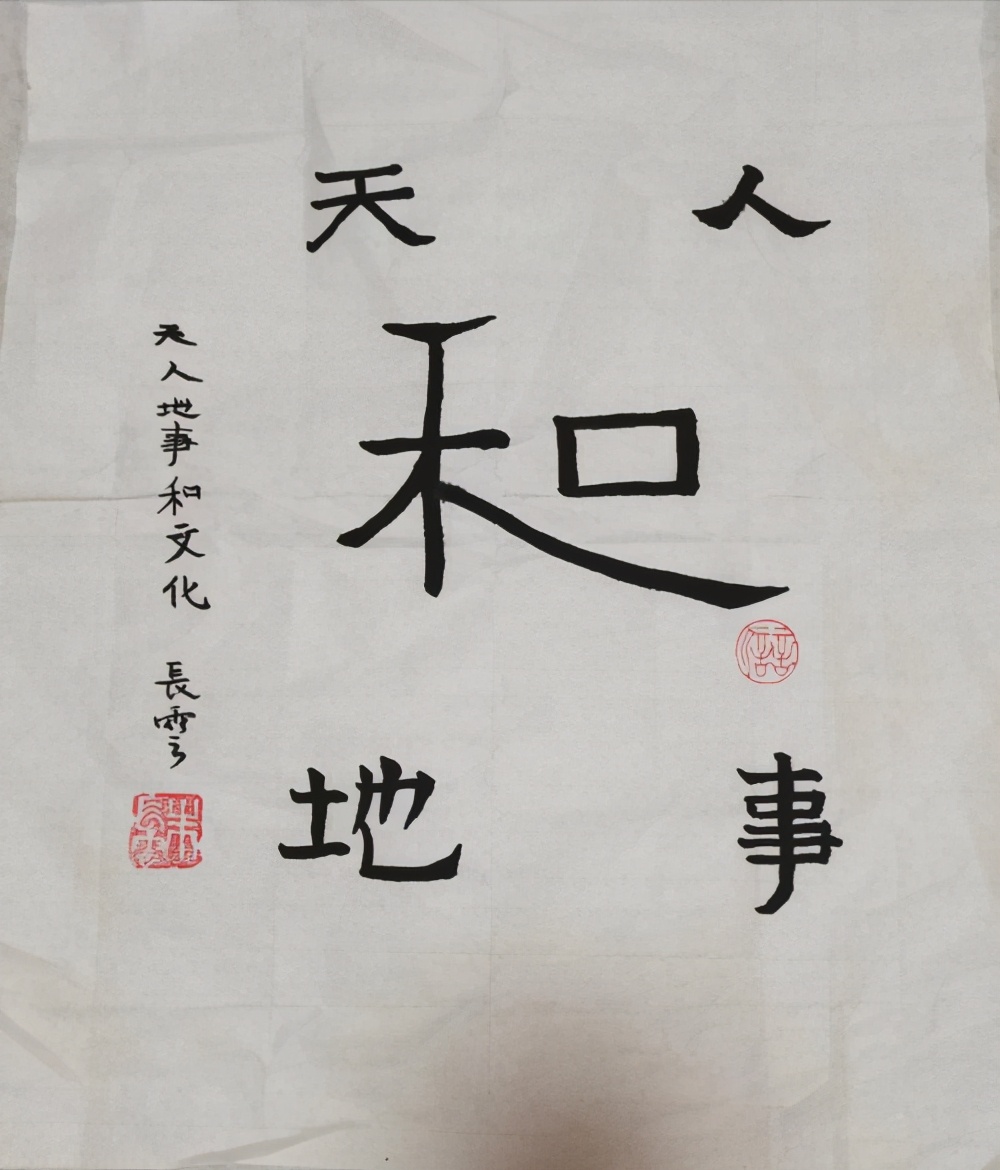 天 人
和
地 事
天人地事和文化 長雲